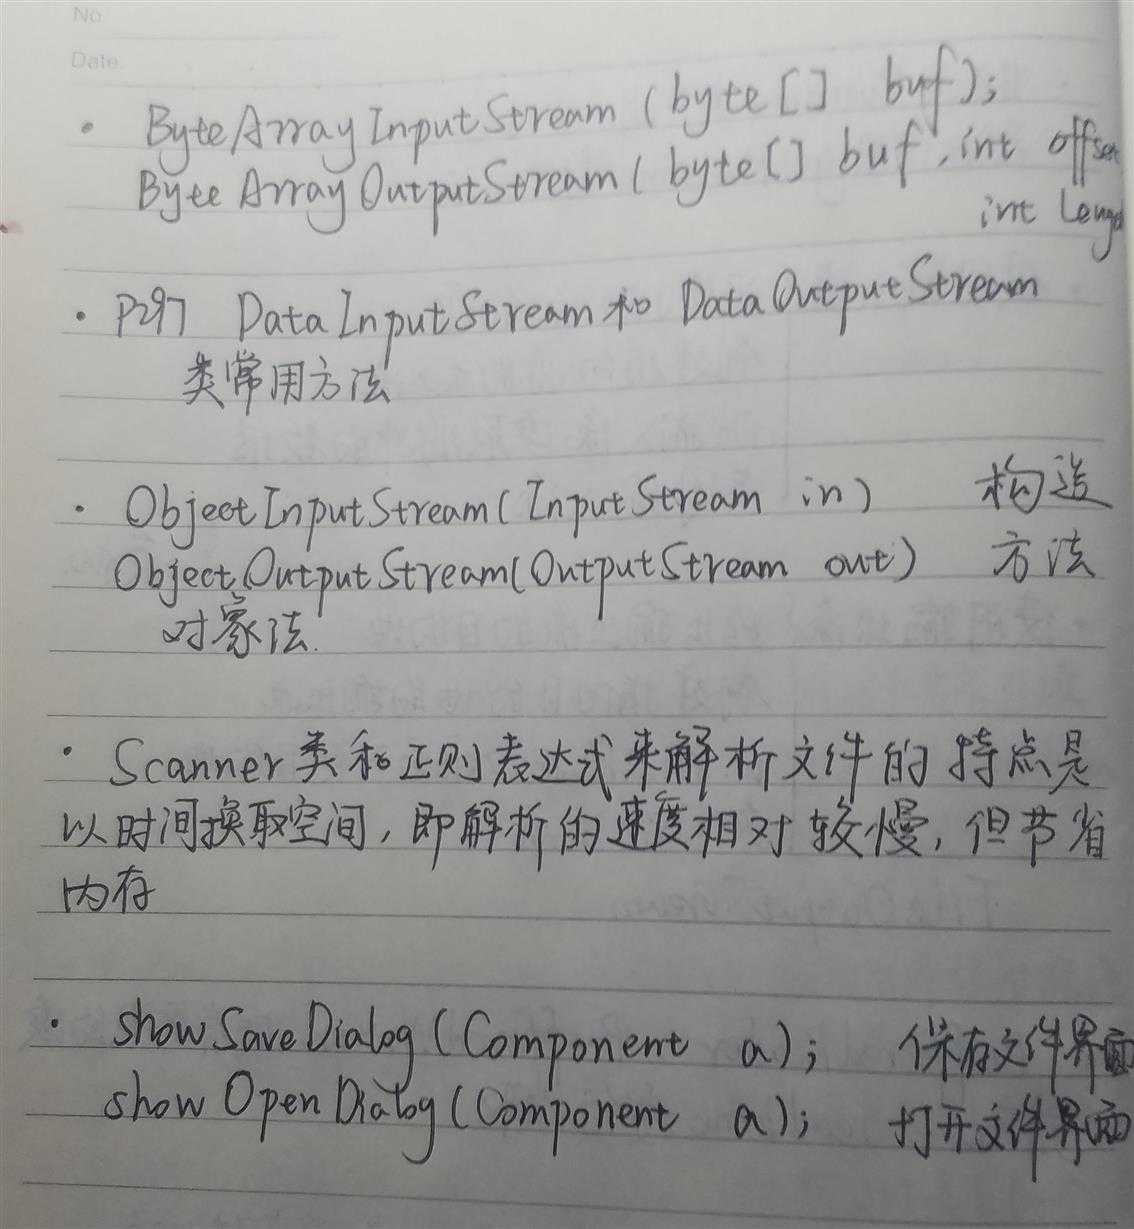 No
Date.
· ByteArrayInputStream (byte[] buf);
ByteArrayOutputStream( byte[] buf, int offset
int Lengt
· P297 DataInputStream和 DataOutputStream
类常用方法
· ObjectInputStream(InputStream in) 构造
ObjectOutputStream(OutputStream out) 方法
对象法.
· Scanner类和正则表达式来解析文件的特点是
以时间换取空间,即解析的速度相对较慢,但节省
内存
· showSaveDialog(Component a); 保存文件界面
showOpenDialog(Component a); 打开文件界面